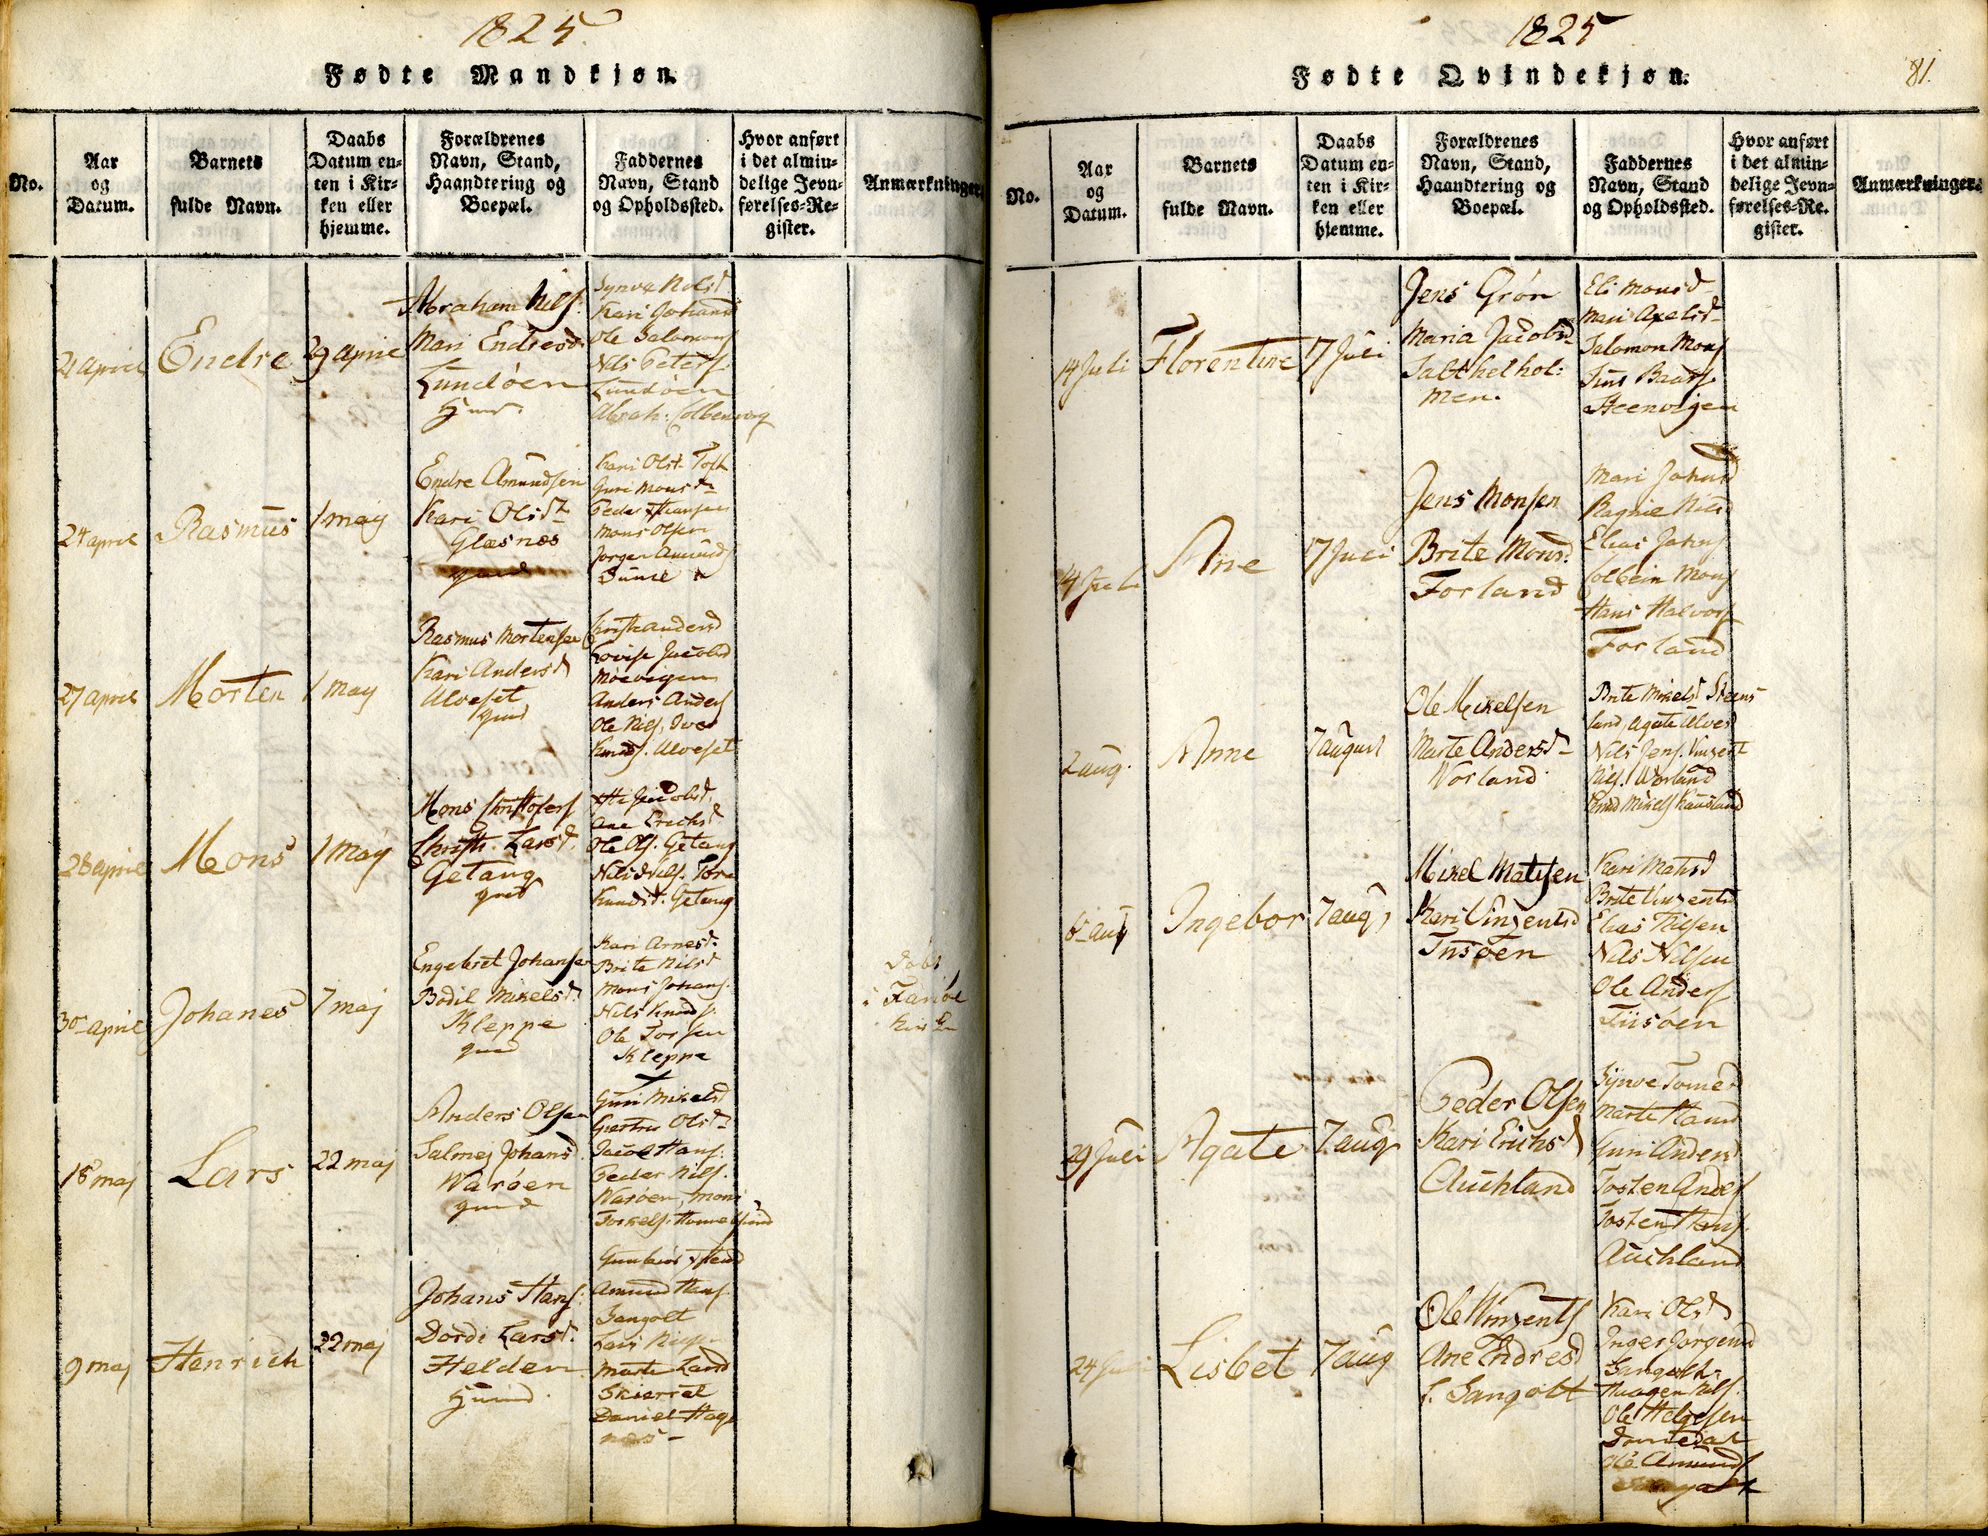 1825
Fødte Mandkjøn.
No.
Aar
og
Datum.
Barnets
fulde Navn.
Daabs
Datum en-
ten i Kir-
ken eller
hjemme.
Forældrenes
Navn, Stand,
Haandtering og
Boepæl.
Faddernes
Navn, Stand
og Opholdssted.
Hvor anført
i det almin-
delige Jevn-
førelses-Re-
gister.
Anmærkninger.
21 april
Endre
29 april
Abraham Nils:
Mari Endresd.
Lundøen
Synve Nilsd
Kari Johansd
Ole Salomons
Nils Peters
Lundøen
24 april
Rasmus
1 may
Endre Amundsen
Kari Olsd
Glesnes
Kari Olsd Toft
Guri Monsd
Peder Hansen
Mons Olsen
Jørgen Amunds
27 april
Morten
1 may
Rasmus Mortensen
Kari Andersd
Alveset
Lovise Jacobsd
Møevigen
Anders Anders
Ole Nils, Iver
Knuds. Alveset
28 april
Mons
1 may
Mons Christofers
Christi. Larsd.
Getang
Ane Erichsd
Ole Ols. Getang
Knudsd. Getang
30 april
Johanes
7 maj
Engebret Johansen
Bodil Mikelsd.
Kleppe
Kari Arnesd.
Brite Nilsd
Mons Johans.
Nils Knuds.
Ole
Kleppe
Døbt
i
18 maj
Lars
22 maj
Anders Olsen
Salmej Johansd.
Warøen
Guri Mikelsd
Giertru Olsd
Jacob Hans:
Peder Nils.
Warøen, Mons
9 maj
Henrich
22 maj
Johans Hans:
Dordi Larsd.
Helden
Amund Hans.
Sangolt
Marte Land
Skierret
Daniel Hage
nes
1825
Fødte Qvindekjøn.
81.
No.
Aar
og
Datum.
Barnets
fulde Navn.
Daabs
Datum en-
ten i Kir-
ken eller
hjemme.
Forældrenes
Navn, Stand,
Haandtering og
Boepæl.
Faddernes
Navn, Stand
og Opholdssted.
Hvor anført
i det almin-
delige Jevn-
førelses-Re-
gister.
Anmærkninger.
14 Juli
Florentine
17 Juli
Jens Grøn
Maria Jacobsd
Salthelhol:
men.
Eli Monsd
Mari Axelsd
Salomon Mons
Steenvigen
14 Juli
Ane
17 Juli
Jens Monsen
Brite Monsd.
Forland
Mari Johansd
Ragnie Nilsd
Elias Johns
Colbein Mons
Hans Halvors
Forland
2 aug.
Anne
7 august
Ole Mikelsen
Marte Andersd
Vorland
Brite Mikelsd Steens-
land, Agate
Nils Jens. Vinzent
Nils. Worland
Knud Mikels Kausland
6 aug
Ingebor
7 aug
Mikel Matsen
Kari Vinzentsd
Tusøen
Kari Matsd
Brite Vinzentsd
Elias Nilsen
Nils Nilsen
Ole Anders
Tusøen
29 Juli
Agate
7 aug
Peder Olsen
Kari Erichsd
Auchland
Synve
Marte Hansd
Guri Andersd
Tosten Anders
Tosten Hans.
Auchland
24 Juli
Lisbet
7 aug
Ole Winzents
Ane Endresd
Sangolt
Kari Olsd
Inger Jørgensd
Sangolt
Haagen Nils.
Ole Helgesen
Ole Amunds